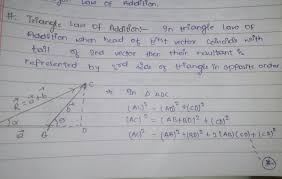 Law of Addition.
#: Triangle Law of Addition:- In triangle law of
Addition when head of first vector Coincide with
tail of 2nd vector then their resultant is
represented by 3rd side of triangle in opposite order
C
R = a + b
b
a
A
B
D
In Δ ADC
(AC)² = (AD)² + (CD)²
(AC)² = (AB+BD)² + (CD)²
(AC)² = (AB)² + (BD)² + 2(AB)(BD) + (CD)²